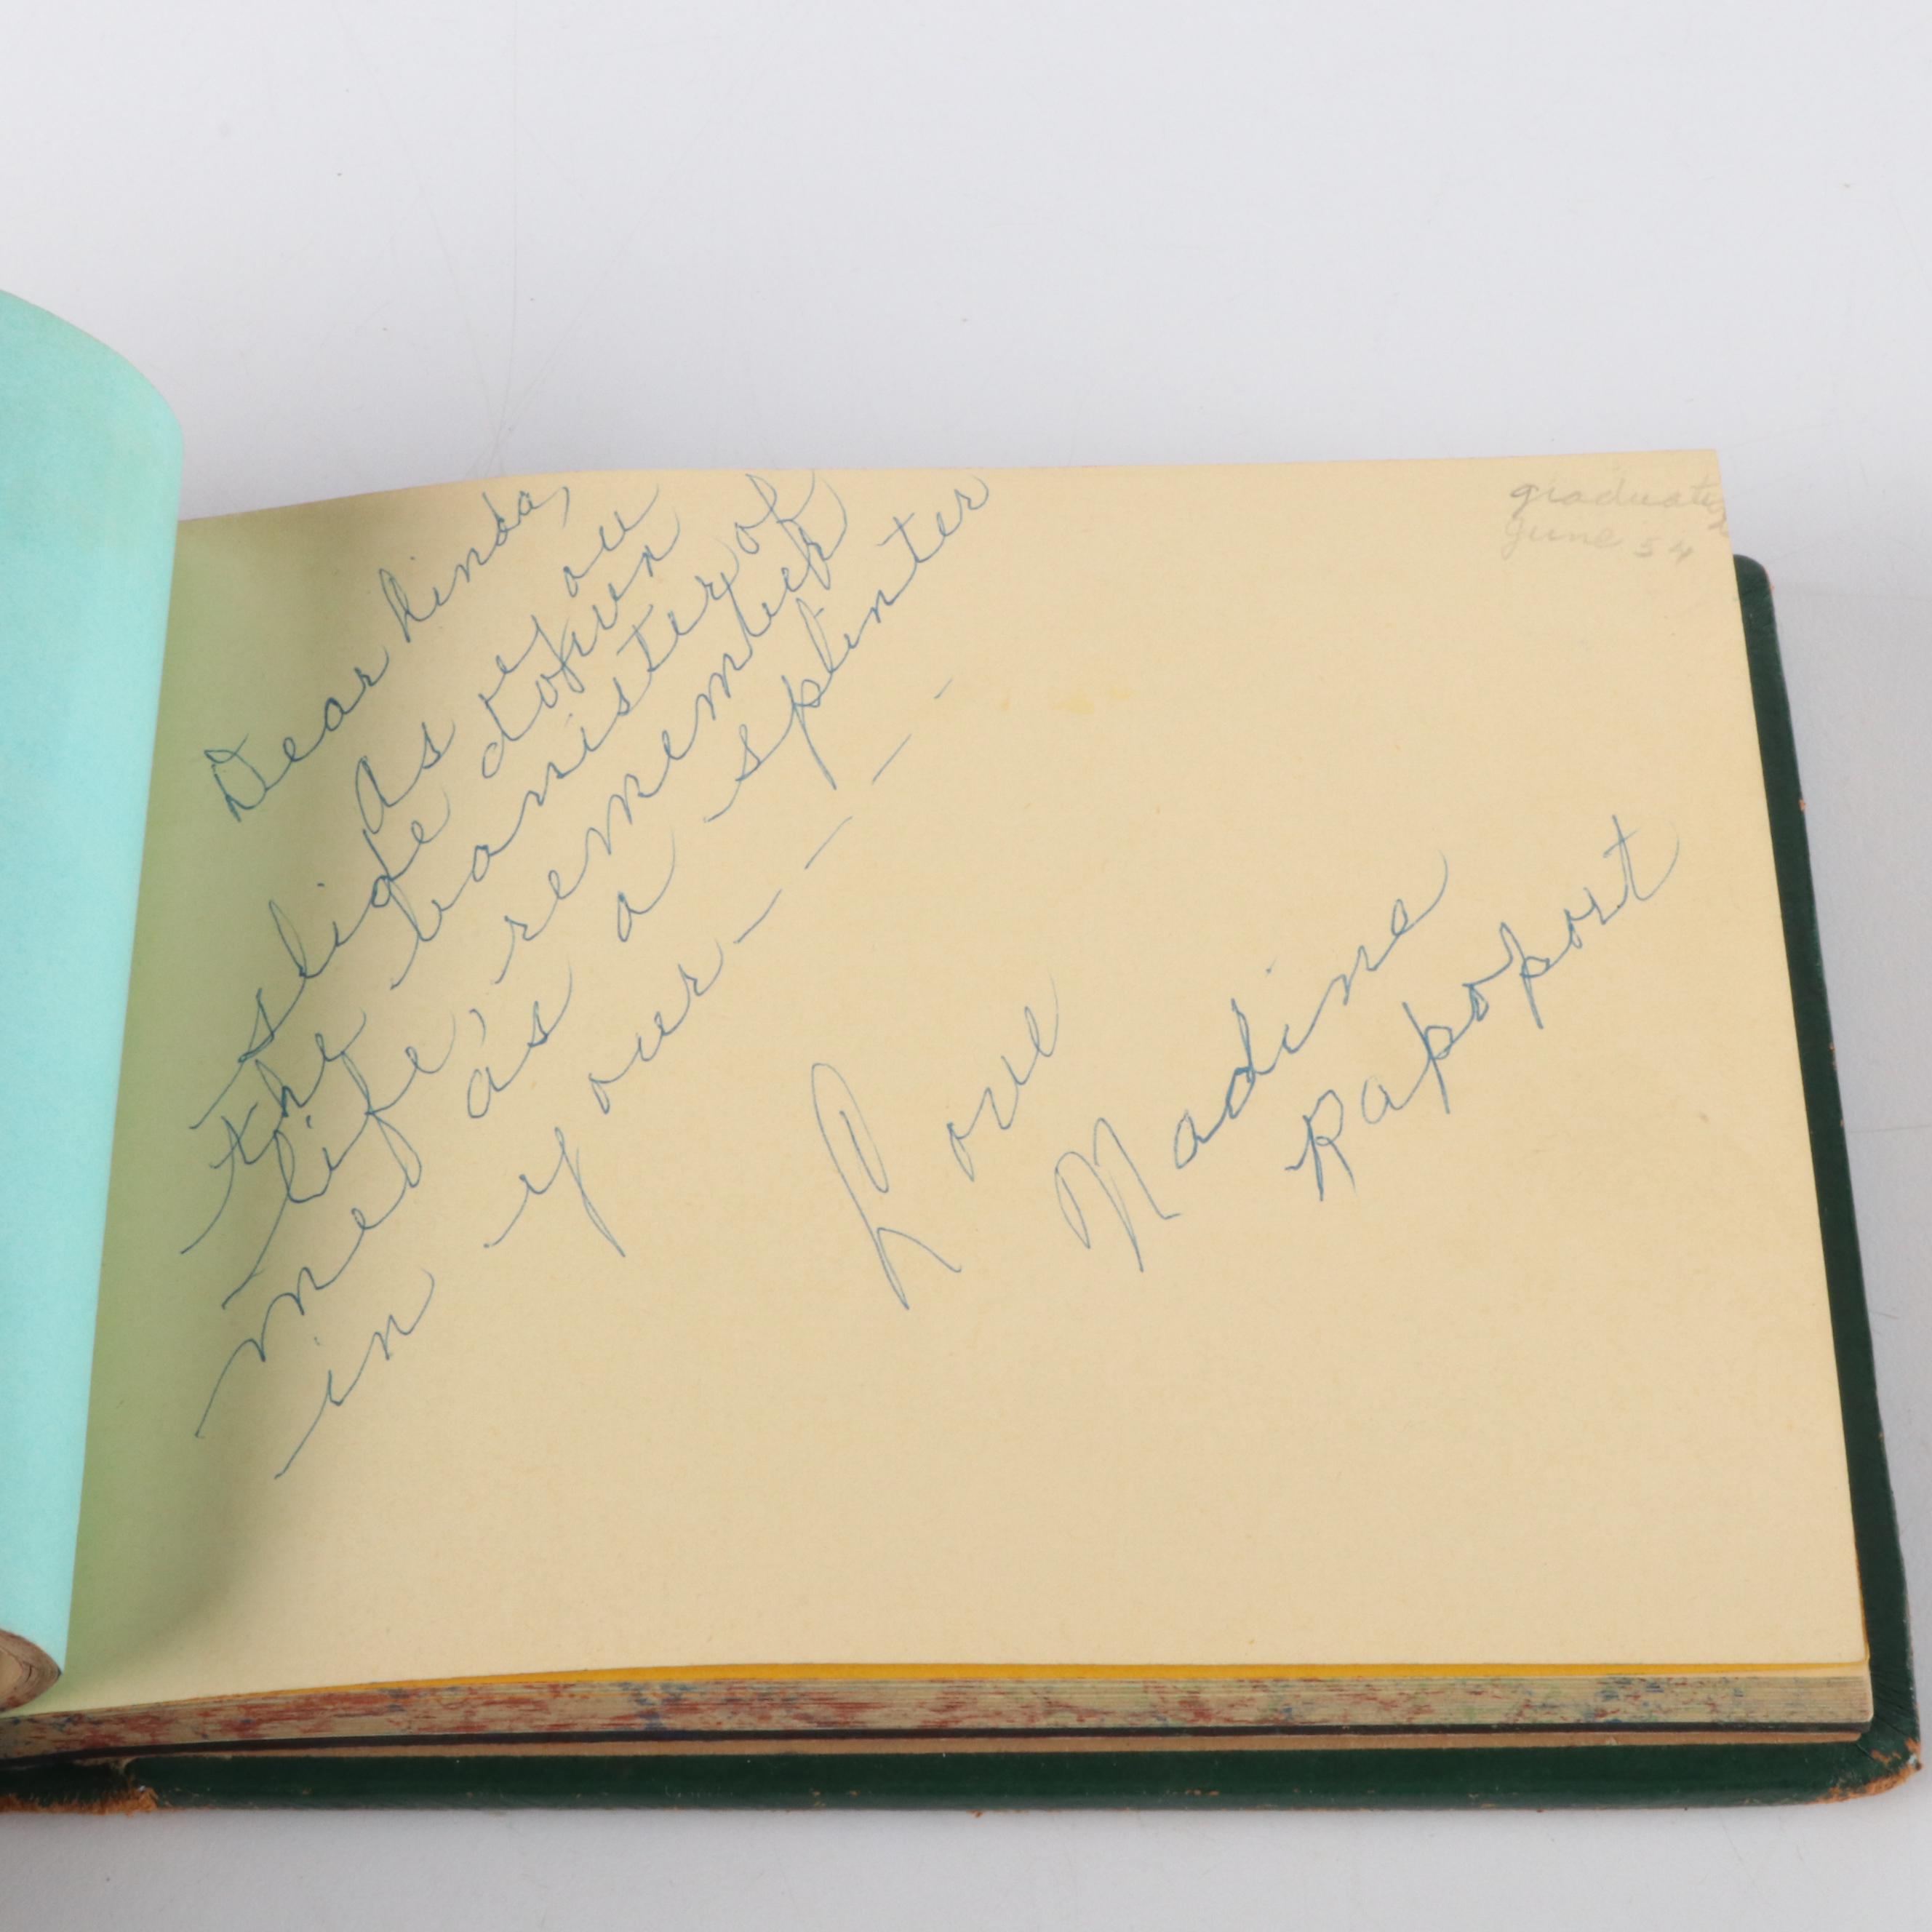 Dear Linda,
As you
slide down
the banister of
life, remember
me as a splinter
in your — — — —
Love
Nadine
Rapoport
June 54